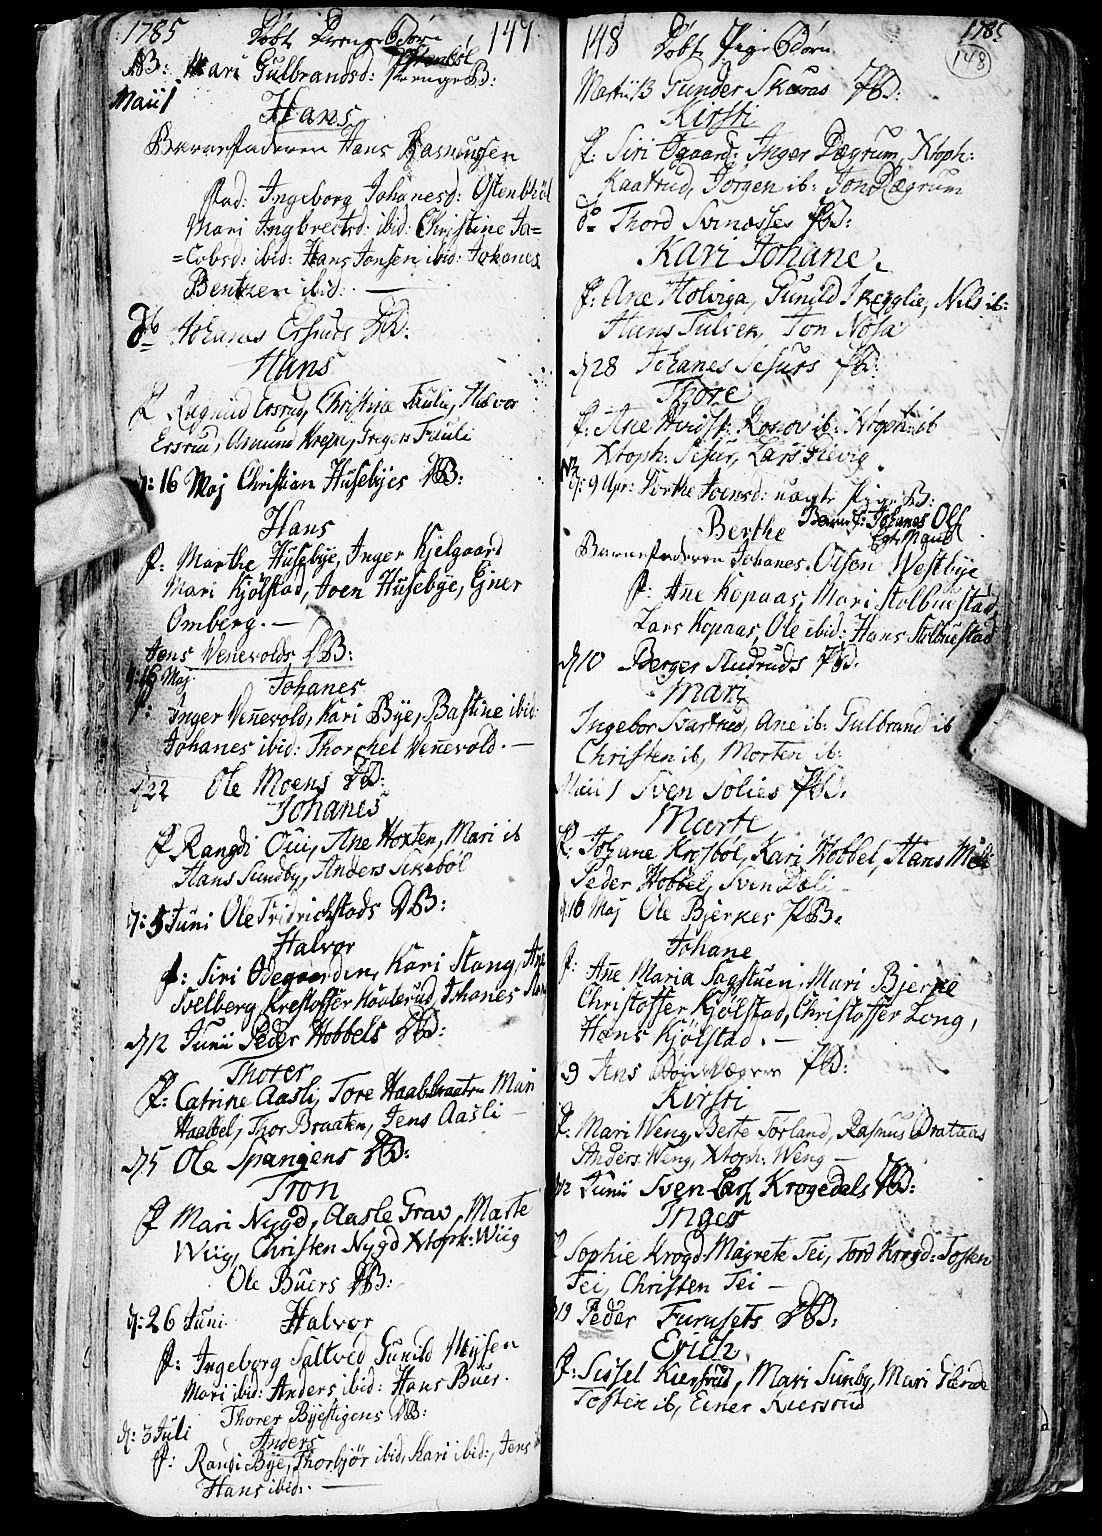 1785 Døbt Drenge Børn 147
NB: Mari Gulbrandsd: Ostenbøl DrengeB:
Maii 1
Hans
Barnefaderen Hans Rasmusen
fad: Ingeborg Johanesd: Ostenbhøl
Mari Ingbrectsd: ibid: Christine Ja=
=Cobsd: ibid: Hans Jonsen ibid: Johanes
Bentzen ibid: —
do Johanes Ersruds DB:
Hans
f Ragnild Ersrud, Christine Fauli, Halvor
Ersrud, Asmund Krepi, Gregers Fauli
d: 16 Maj Christian Husebyes DB:
Hans
f: Marthe Husebye, Inger Kjelgaard
Mari Kjølstad, Joen Husebye, Ejner
Omberg. —
Jens Venevolds DB:
d: 16 Maj
Johanes
f: Inger Venevold, Kari Bye, Bastine ibid:
Johanes ibid: Thorchel Venevold. —
d 22 Ole Moens DB:
Johanes
f Rangdi Oui, Ane Hoxten, Mari ib
Hans Sundby, Anders Sikebøl
d: 5 Juni Ole Fridrichstads DB:
Halvor
f: Siri Ødegaarden, Kari Stang,
Svelberg, Krestoffer Kaaterud, Johanes
d 12 Junii Peder Hobbels DB:
Thorer
f: Catrine Aasli, Tore Haabbraaten Mari
Haabbel, Thor Braaten, Jens Aasli —
d 5 Ole Spangens DB:
Tron
f Mari Nygd, Aasle Grav, Marte
Wiig, Christen Nygd Xtoph: Wiig
Ole Buers DB:
d: 26 Juni. Halvor
f: Ingeborg Saltved, Gunild Mysen
Mari ibid: Anders ibid: Hans Buer.
Thorer Byestigens DB:
d: 3 Juli Anders
f: Randi Bye, Thorbjør ibid, Kari ibid:, Jens
Hans ibid: —
148 Døbt Pige Børn 1785
148
Martii 13 Gunder Skaras PB:
Kirsti
f: Siri Øgaard: Inger Dægrum, Xtoph:
Kaatrud, Jorgen ib: Jon Dægrum
do Thord Svinæsses PB:
Kari Johane.
f: Ane Holviga, Gunild Skeyglie, Nils ib:
Hans Tulver, Jon Nosa
d 28 Johanes Sefurs PB:
Thore
f: Ane Ronov ib: Xtoph: ib
Xtoph: Sefur, Lars Hevig
NB
d: 9 Apr: Dorthe Joensd: uægte Pige B:
Berthe Barnef: Johanes Ols
Egte Mand
Barnefaderen Johanes Olsen Westbye
f: Ane Kopaas, Mari Stolbuestad,
Lars Kopaas, Ole ibid: Hans Stolbuestad
d 10 Berger Rudruds PB:
Mari
Ingebor Svartrud, Ane ib: Gulbrand ib
Christen ib, Morten ib:
Maii 1 Sven Solies PB:
Marte
f: Johane Krosbøl, Kari Hobbel, Hans Moe
Peder Hobbel, Sven Dæli —
d 16 Maj Ole Bjerkes PB:
Johane
f: Ane Maria Sagstuen, Mari Bjerke
Christoffer Kjølstad, Christoffer Long,
Hans Kjølstad. —
Jens PB:
Kirsti
f: Mari Weng, Berte Torland, Rasmus Brataas
Anders Weng, Xtoph: Weng —
12 Junii Sven Lars Krogedals PB:
Inger
f Sophie Krogd: Magrete Tei, Tord Krogd: Tosten
Tei, Christen Tei —
d 19 Peder Furusets DB:
Erich
f: Sissel Kiersrud, Mari Sunby, Mari
Tosten ib, Einer Kiersrud